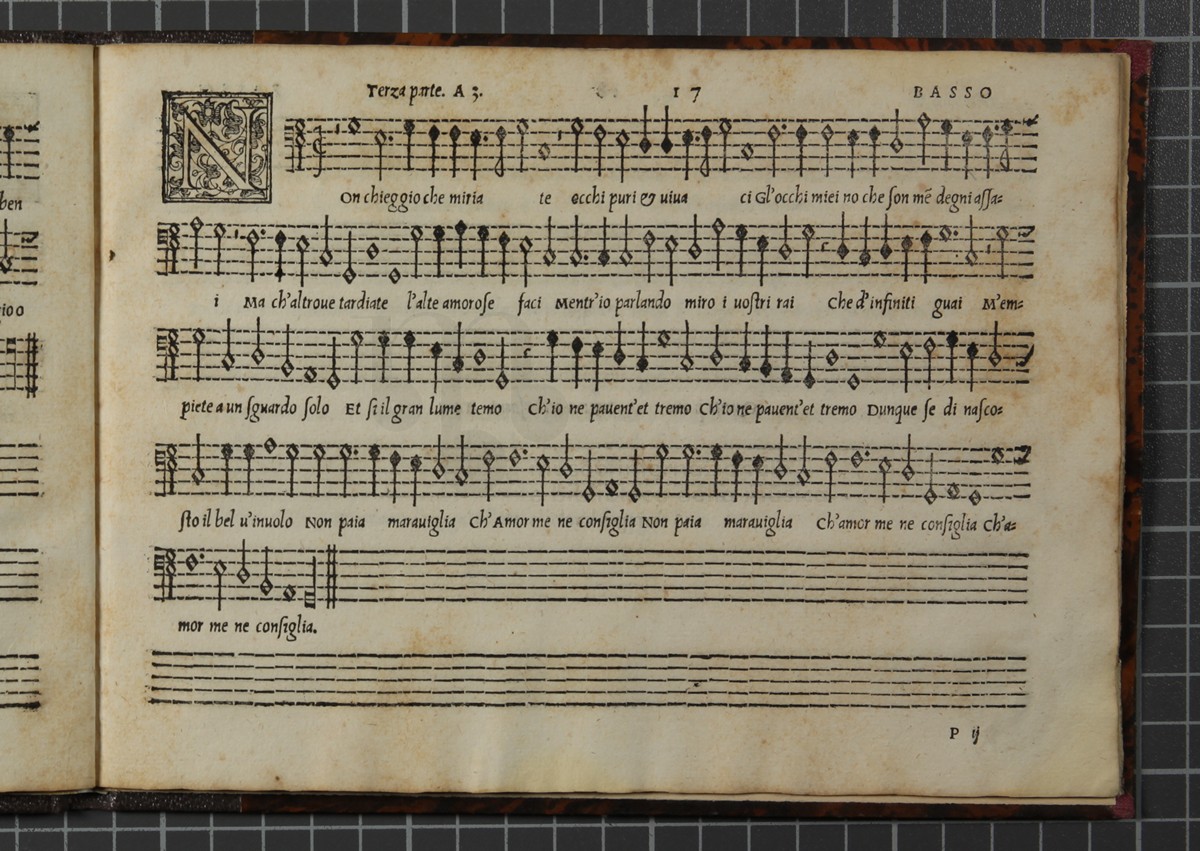 ben
io o
Terza parte. A 3.
17
BASSO
NOn chieggio che miria te occhi puri & uiua ci Gl'occhi miei no che ſon mē degni aſſa=
i Ma ch'altroue tardiate l'alte amoroſe faci Mentr'io parlando miro i uoſtri rai Che d'infiniti guai M'em=
piete a un ſguardo ſolo Et ſi il gran lume temo Ch'io ne pauent'et tremo Ch'io ne pauent'et tremo Dunque ſe di naſco=
ſto il bel u'inuolo Non paia marauiglia Ch'Amor me ne conſiglia Non paia marauiglia Ch'amor me ne conſiglia Ch'a=
mor me ne conſiglia.
P ij